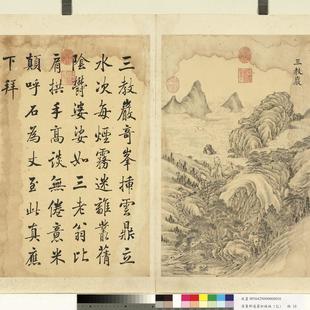 三教巖
三教巖奇峯插雲鼎立
水次每煙霧迷離叢篠
陰翳婆娑如三老翁比
肩拱手高談無倦意米
顛呼石為丈至此真應
下拜